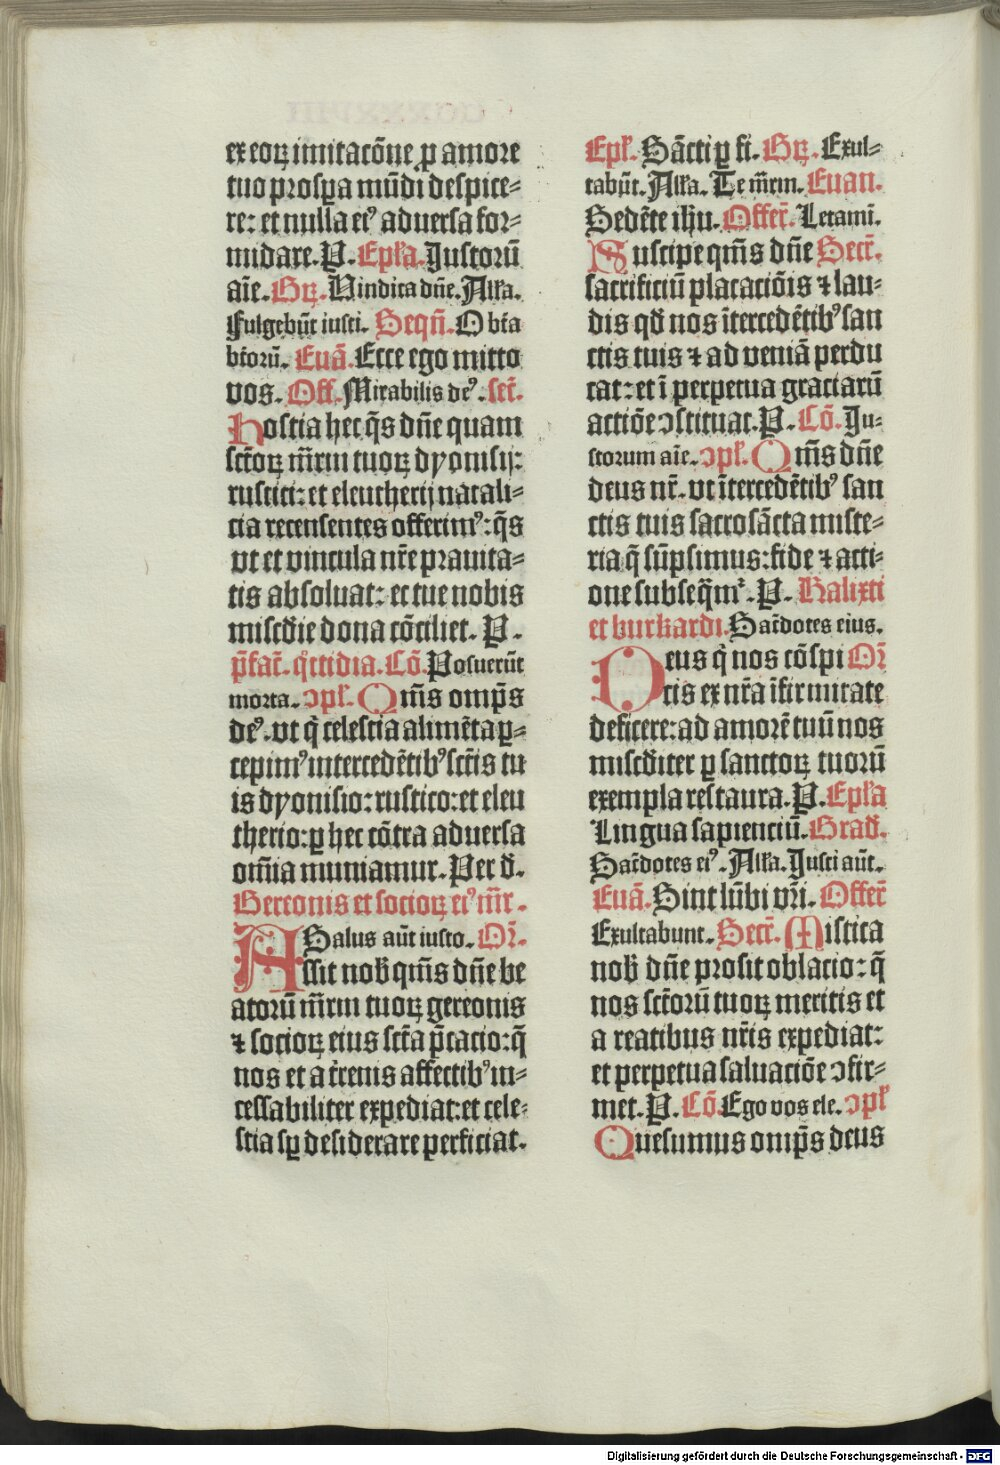 ex eoꝝ imitacõne ꝓ amore
tuo prosꝑa mũdi despice⸗
re: et nulla eiꝰ aduersa for⸗
midare. P. Epl̃a. Justorũ
aĩe. Gꝝ. Vindica dñe. All̃a.
Fulgebũt iusti. Seqñ. O bt̃a
bt̃orũ. Euã. Ecce ego mitto
vos. Off. Mirabilis deꝰ. sec̃.
Hostia hec q̃s dñe quam
sct̃oꝝ m̃rm tuoꝝ dyonisij:
rustici: et eleutherij natali⸗
cia recensentes offerimꝰ: q̃s
vt et vincula nr̃e prauita⸗
tis absoluat: et tue nobis
misc̃die dona cõciliet. P.
p̃fac̃. q̃ttidia. Cõ. Posuerũt
morta. ↄpl̃. Qm̃s omp̃s
deꝰ. vt q̃ celestia alimẽta ꝑ⸗
cepimꝰ intercedẽtibꝰ sct̃is tu
is dyonisio: rustico: et eleu
therio: ꝑ hec cõtra aduersa
om̃ia muniamur. Per d̃.
Gereonis et socioꝝ eiꝰ m̃r.
Salus aũt iusto. Or̃.
Assit nob̃ qm̃s dñe be
atorũ m̃rm tuoꝝ gereonis
⁊ socioꝝ eius sct̃a p̃cacio: q̃
nos et a t̃renis affectibꝰ in⸗
cessabiliter expediat: et cele⸗
stia sꝑ desiderare perficiat.
Epl̃. Sãcti ꝑ fi. Gꝝ. Exul⸗
tabũt. All̃a. Te m̃rm. Euan.
Sedẽte ihũ. Offer̃. Letamĩ.
Suscipe qm̃s dñe Secr̃.
sacrificiũ placaciõis ⁊ lau⸗
dis qd̃ nos ĩtercedẽtibꝰ san
ctis tuis ⁊ ad veniã perdu
cat: et ĩ perpetua graciarũ
actiõe ↄstituat. P. Cõ. Ju⸗
storum aĩe. ↄpl̃. Qm̃s dñe
deus nr̃. vt ĩtercedẽtibꝰ san
ctis tuis sacrosãcta miste⸗
ria q̃ sũpsimus: fide ⁊ acti⸗
one subseq̃mr̃. P. Kalixti
et burkardi. Sac̃dotes eius.
Deus q̃ nos cõspi Or̃
cis ex nr̃a ĩfirmitate
deficere: ad amorẽ tuũ nos
misc̃diter ꝑ sanctoꝝ tuorũ
exempla restaura. P. Epl̃a
Lingua sapienciũ. Grad̃.
Sac̃dotes eiꝰ. All̃a. Justi aũt.
Euã. Sint lũbi vr̃i. Offer̃
Exultabunt. Secr̃. Mistica
nob̃ dñe prosit oblacio: q̃
nos sct̃orũ tuoꝝ meritis et
a reatibus nr̃is expediat:
et perpetua saluaciõe ↄfir⸗
met. P. Cõ. Ego vos ele. ↄpl̃
Quesumus omp̃s deus
Digitalisierung gefördert durch die Deutsche Forschungsgemeinschaft - DFG